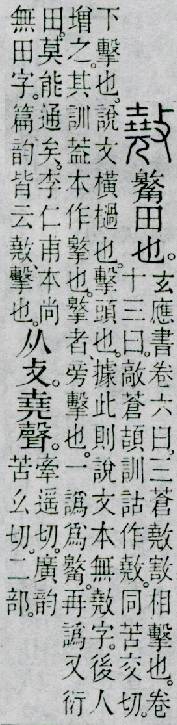 㪣 𦅾田也。
玄應書卷六曰。三蒼㪣敲相擊也。卷
十三曰。敲蒼頡訓詁作㪣。同苦交切。
下擊也。說文橫檛也。擊頭也。據此則說文本無㪣字。後人
增之。其訓葢本作撽也。撽者。旁擊也。一譌爲𦅾。再譌又衍
田。莫能通矣。李仁甫本尚
無田字。篇韵皆云㪣擊也。
从攴。堯聲。
牽遥切。廣韵
苦幺切。二部。